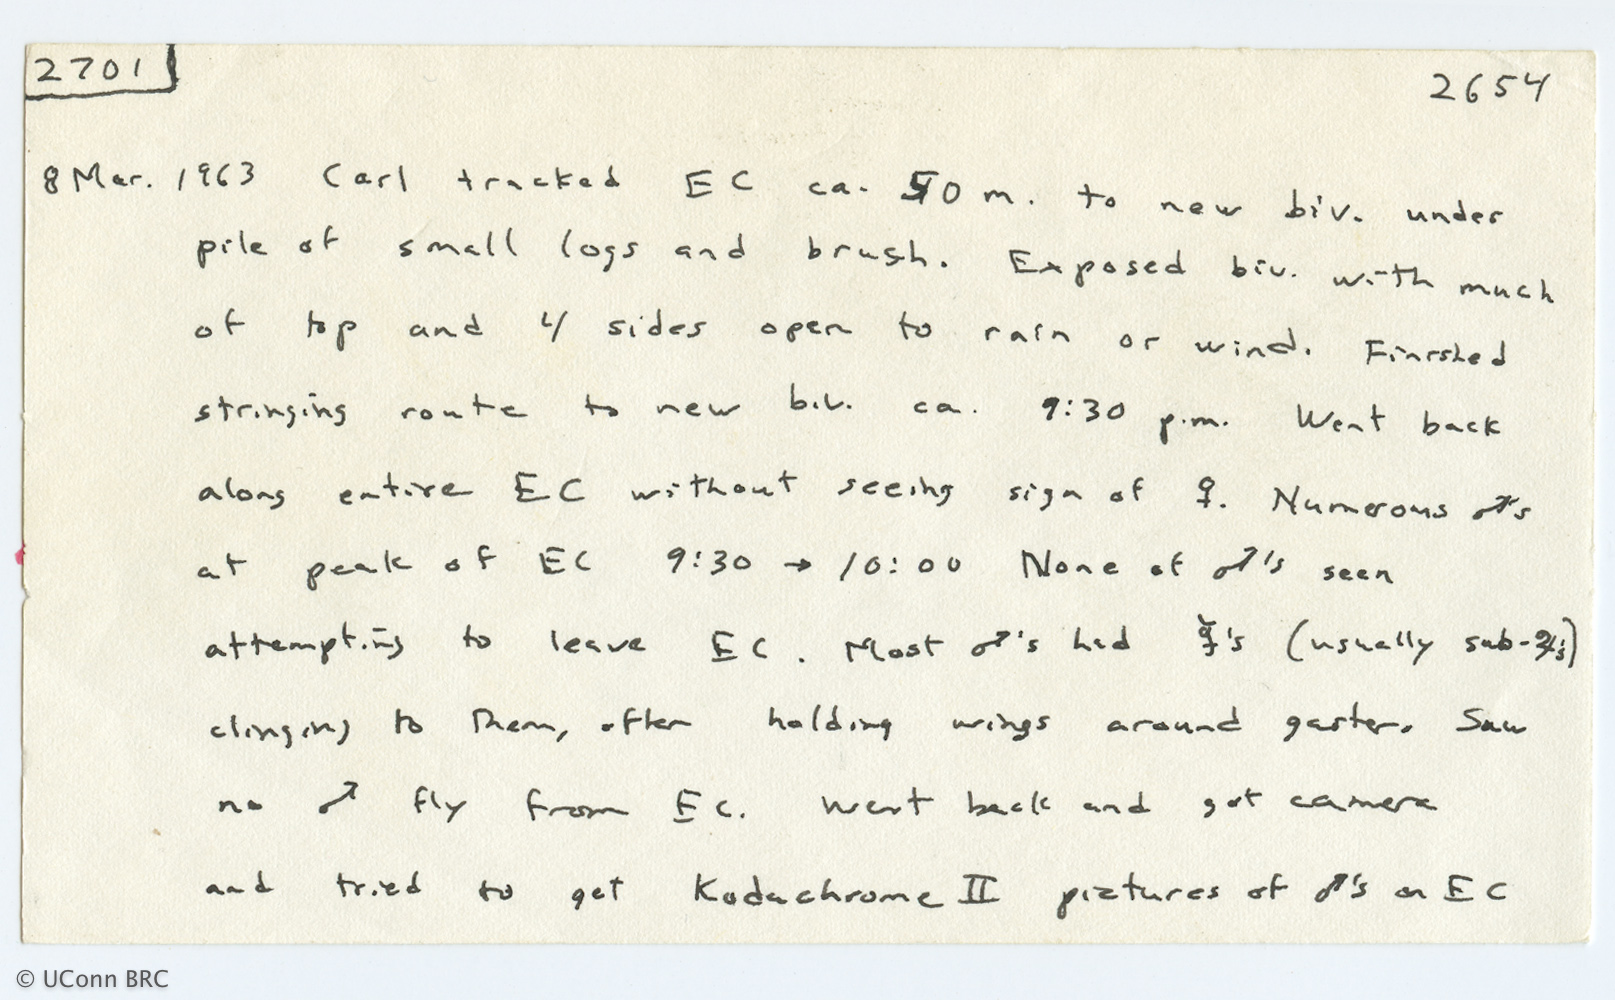 2701
2654
8 Mar. 1963 Carl tracked EC ca. 50 m. to new biv. under
pile of small logs and brush. Exposed biv. with much
of top and 4 sides open to rain or wind. Finished
stringing route to new biv. ca. 9:30 p.m. Went back
along entire EC without seeing sign of ♀. Numerous ♂'s
at peak of EC 9:30 → 10:00 None of ♂'s seen
attempting to leave EC. Most ♂'s had ☿'s (usually sub-♀'s)
clinging to them, often holding wings around gaster. Saw
no ♂ fly from EC. Went back and got camera
and tried to get Kodachrome II pictures of ♂'s on EC
© UConn BRC